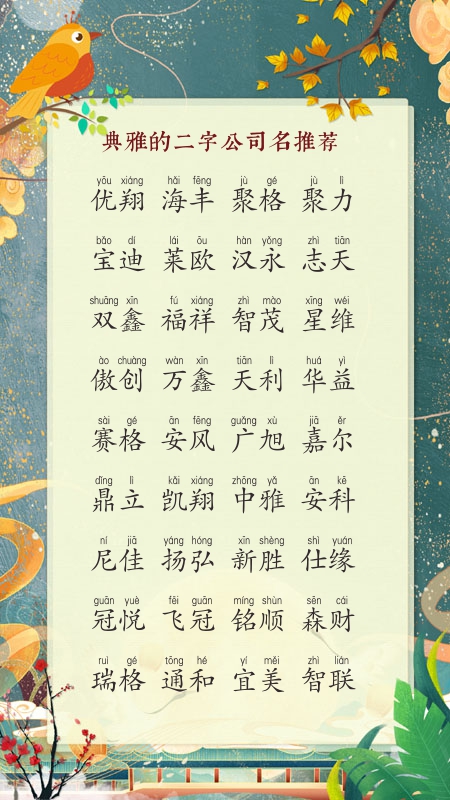 典雅的二字公司名推荐
yōu xiáng hǎi fēng jù gé jù lì
优翔 海丰 聚格 聚力
bǎo dí lái ōu hàn yǒng zhì tiān
宝迪 莱欧 汉永 志天
shuāng xīn fú xiáng zhì mào xīng wéi
双鑫 福祥 智茂 星维
ào chuàng wàn xīn tiān lì huá yì
傲创 万鑫 天利 华益
sài gé ān fēng guǎng xù jiā ěr
赛格 安风 广旭 嘉尔
dǐng lì kǎi xiáng zhōng yǎ ān kē
鼎立 凯翔 中雅 安科
ní jiā yáng hóng xīn shèng shì yuán
尼佳 扬弘 新胜 仕缘
guān yuè fēi guān míng shùn sēn cái
冠悦 飞冠 铭顺 森财
ruì gé tōng hé yí měi zhì lián
瑞格 通和 宜美 智联